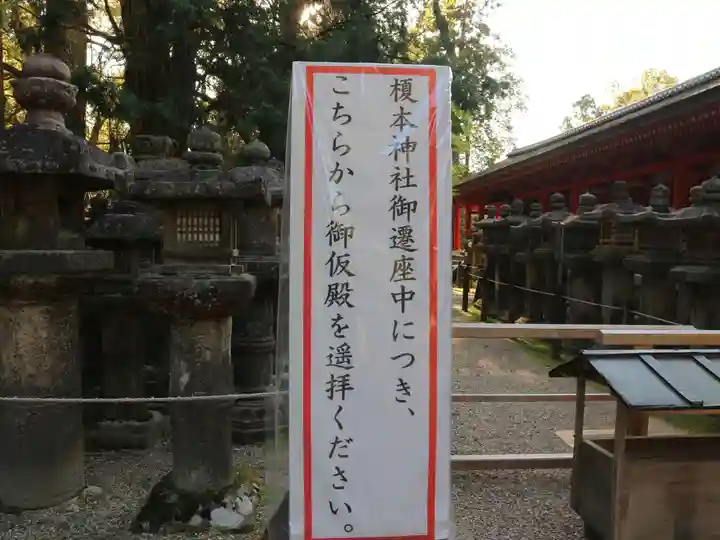 榎本神社御遷座中につき、
こちらから御仮殿を遥拝ください。